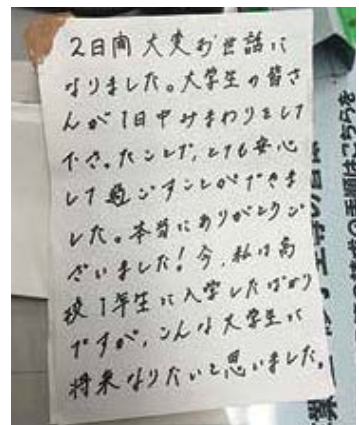 2日間大変お世話に
なりました。大学生の皆さ
んが1日中みまわりをして
下さったことで、とても安心
して過ごすことができま
した。本当にありがとうご
ざいました!今、私は高
校1年生に入学したばかり
ですが、こんな大学生に
将来なりたいと思いました。